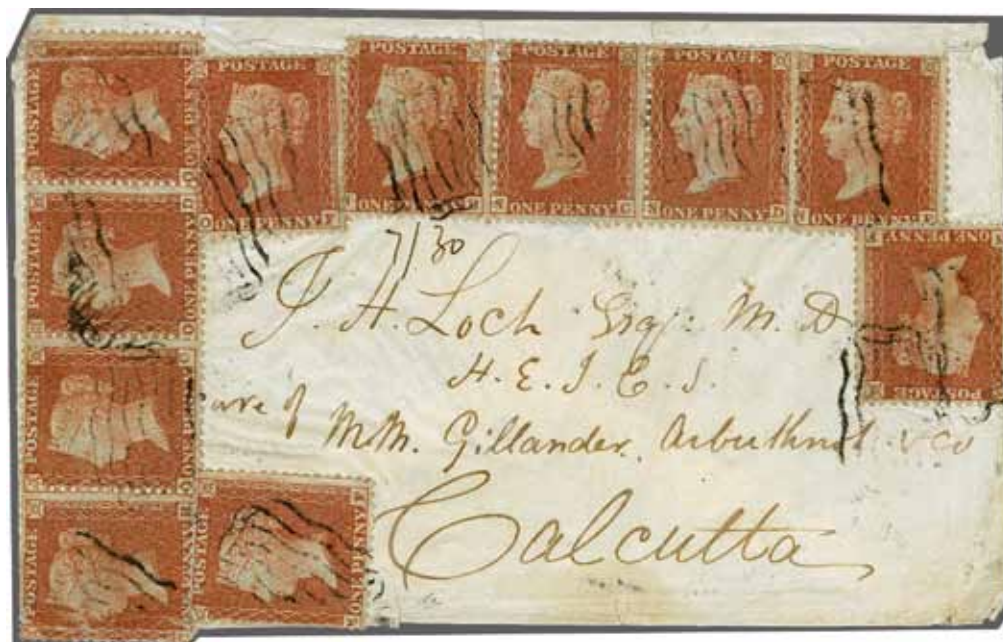 POSTAGE ONE PENNY
POSTAGE ONE PENNY
POSTAGE ONE PENNY
POSTAGE ONE PENNY
POSTAGE ONE PENNY
POSTAGE ONE PENNY
POSTAGE ONE PENNY
POSTAGE ONE PENNY
POSTAGE ONE PENNY
POSTAGE ONE PENNY
POSTAGE ONE PENNY
7/30
J. H. Loch Esqr. M. D
H. E. I. C. S.
care of
MM. Gillander, Arbuthnot & Co
Calcutta